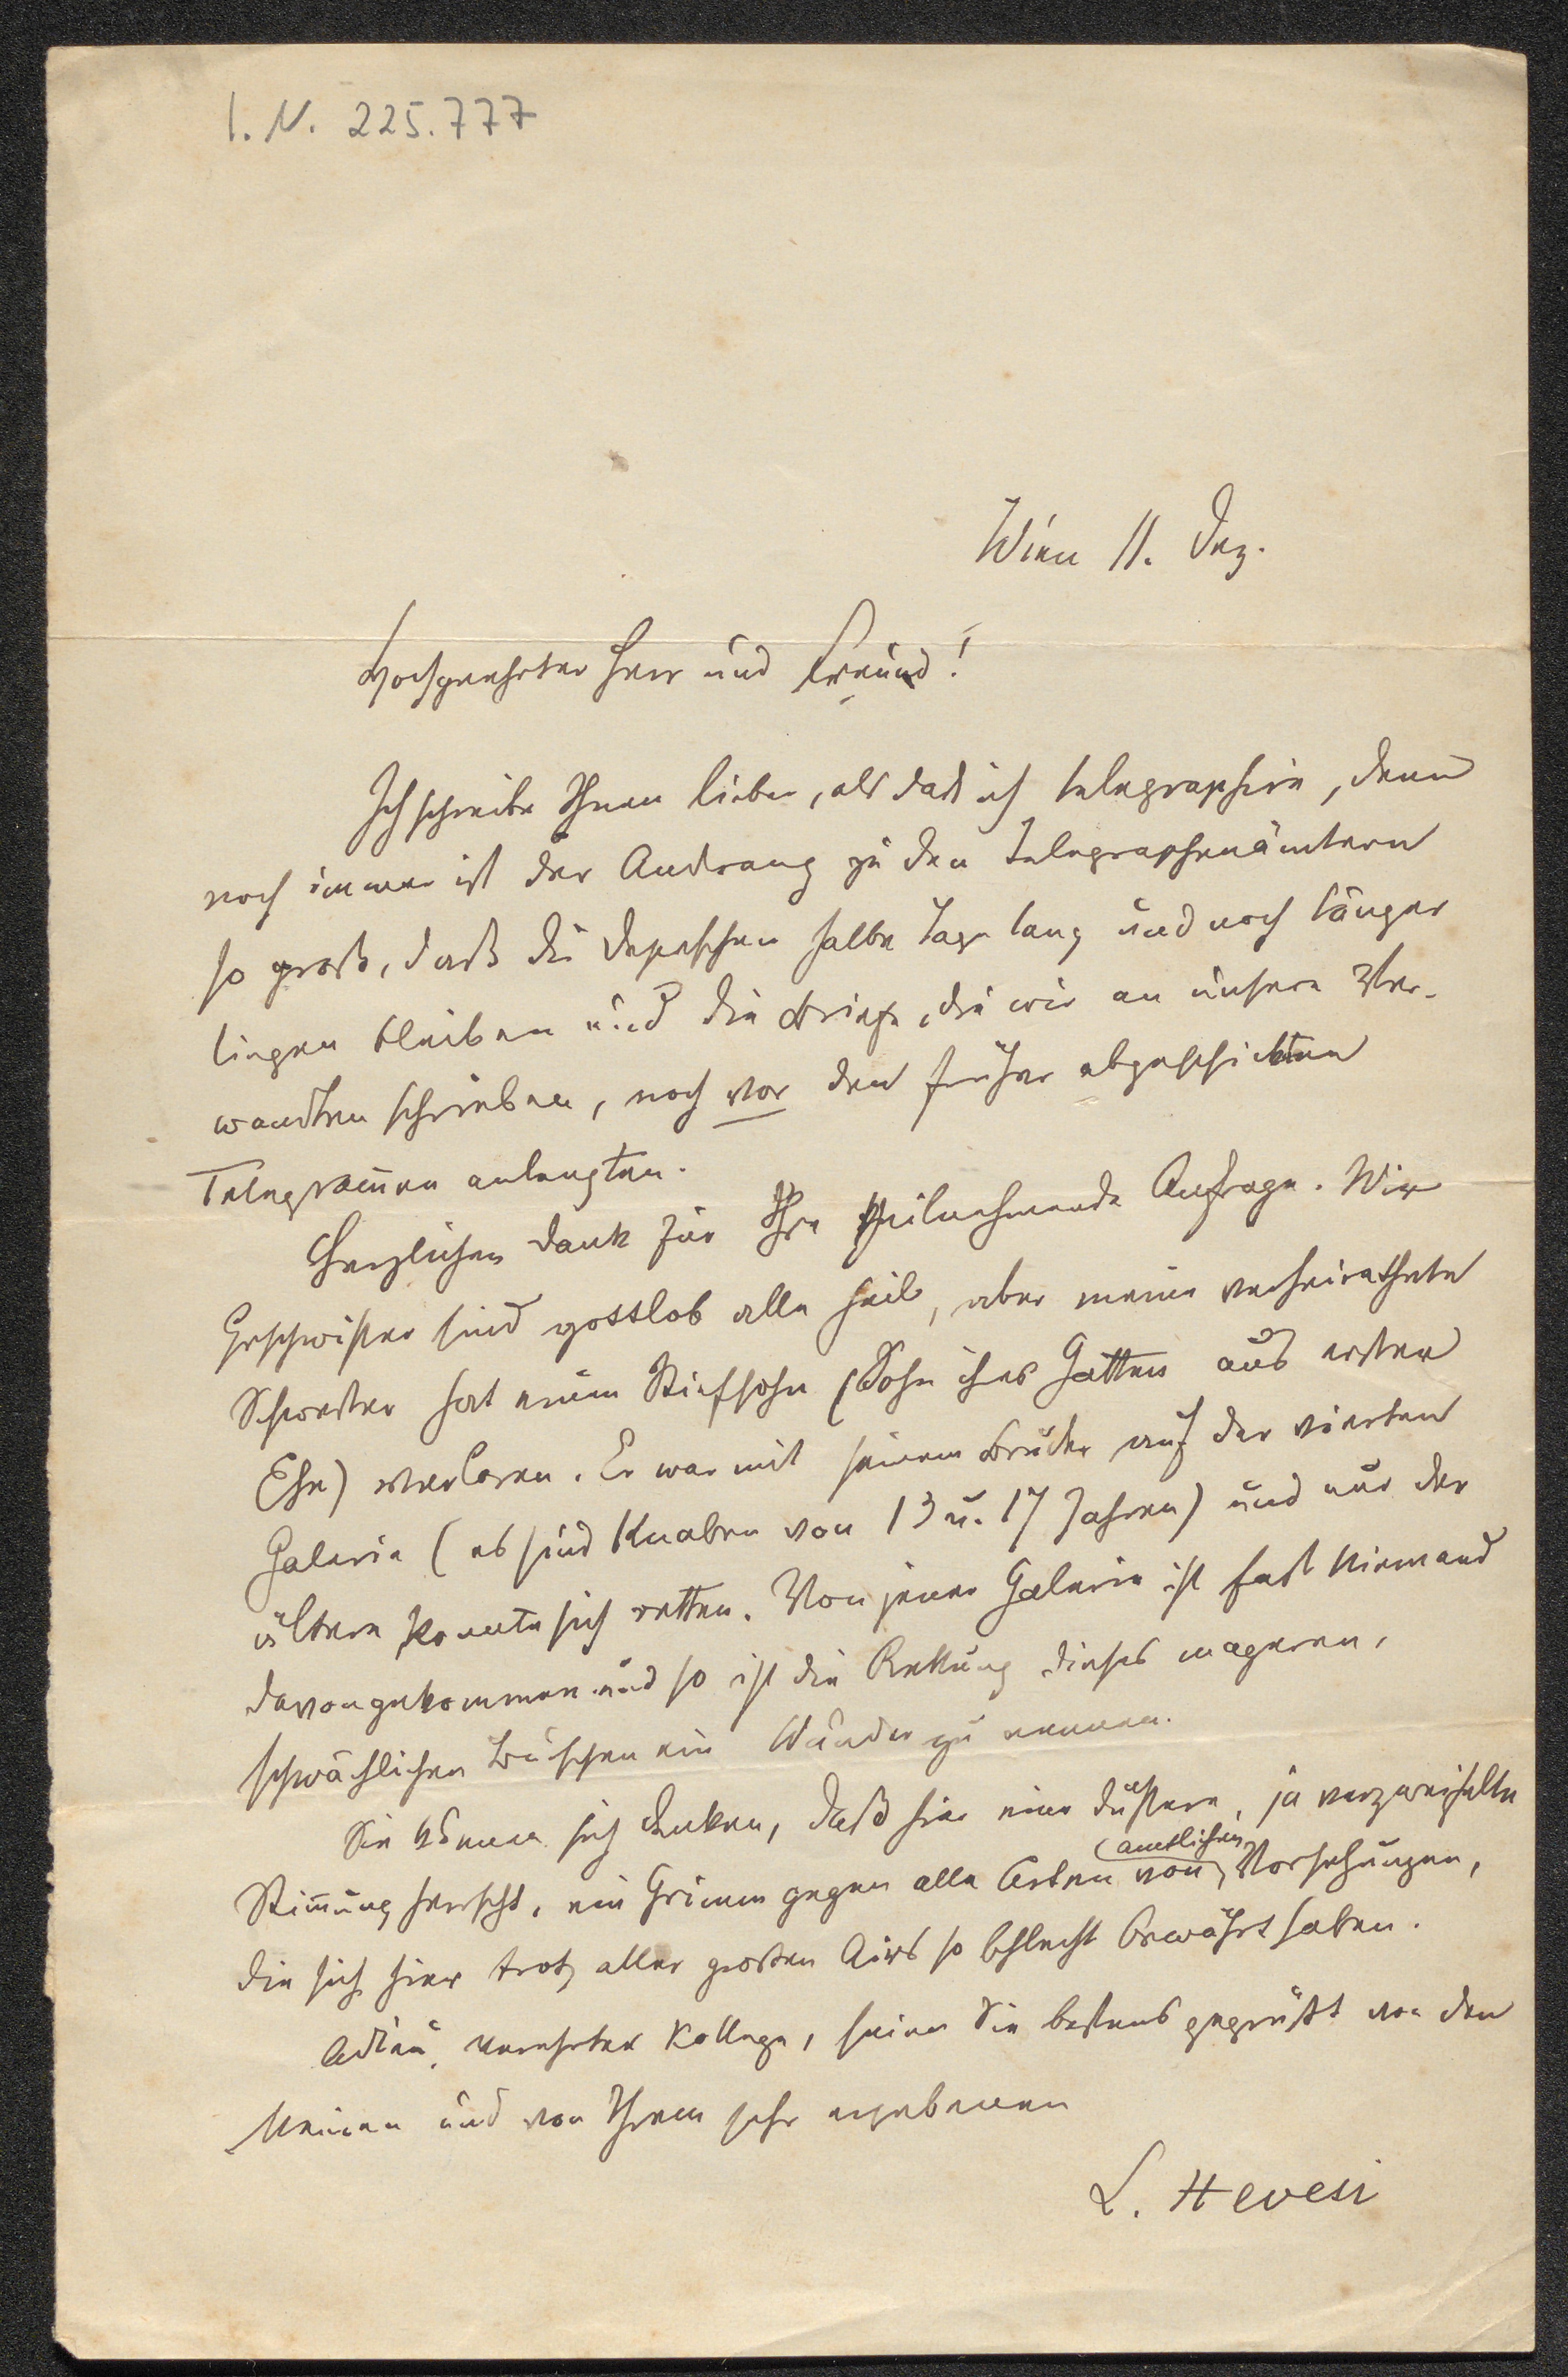 I. N. 225.777
Wien 11. Dez.
Hochgeehrter Herr und Freund!
Ich schreibe Ihnen lieber, als daß ich telegraphire, denn
noch immer ist der Andrang zu den Telegraphenämtern
so groß, daß die Depeschen halbe Tage lang und noch länger
liegen bleiben und die Briefe, die wir an unsere Ver-
wandten schrieben, noch vor den früher abgeschickten
Telegram̅en anlangten.
Herzlichen Dank für Ihre theilnehmende Anfrage. Wir
Geschwister sind gottlob alle heil, aber meine verheirathete
Schwester hat einen Stiefsohn (Sohn ihres Gatten aus erster
Ehe) verloren. Er war mit seinem Bruder auf der vierten
Galerie (es sind Knaben von 13 u. 17 Jahren) und nur der
ältere konnte sich retten. Von jener Galerie ist fast Niemand
davongekommen und so ist die Rettung dieses mageren,
schwächlichen Burschen ein Wunder zu nennen.
Sie können sich denken, daß hier eine düstere, ja verzweifelte
Stim̅ung herrscht, ein Grimm gegen alle Arten von (amtlichen) Vorsehungen,
die sich hier trotz aller großen Airs so schlecht bewährt haben.
Adieu, verehrter Kollege, seien Sie bestens gegrüßt von den
Meinen und von Ihrem sehr ergebenen
L. Hevesi